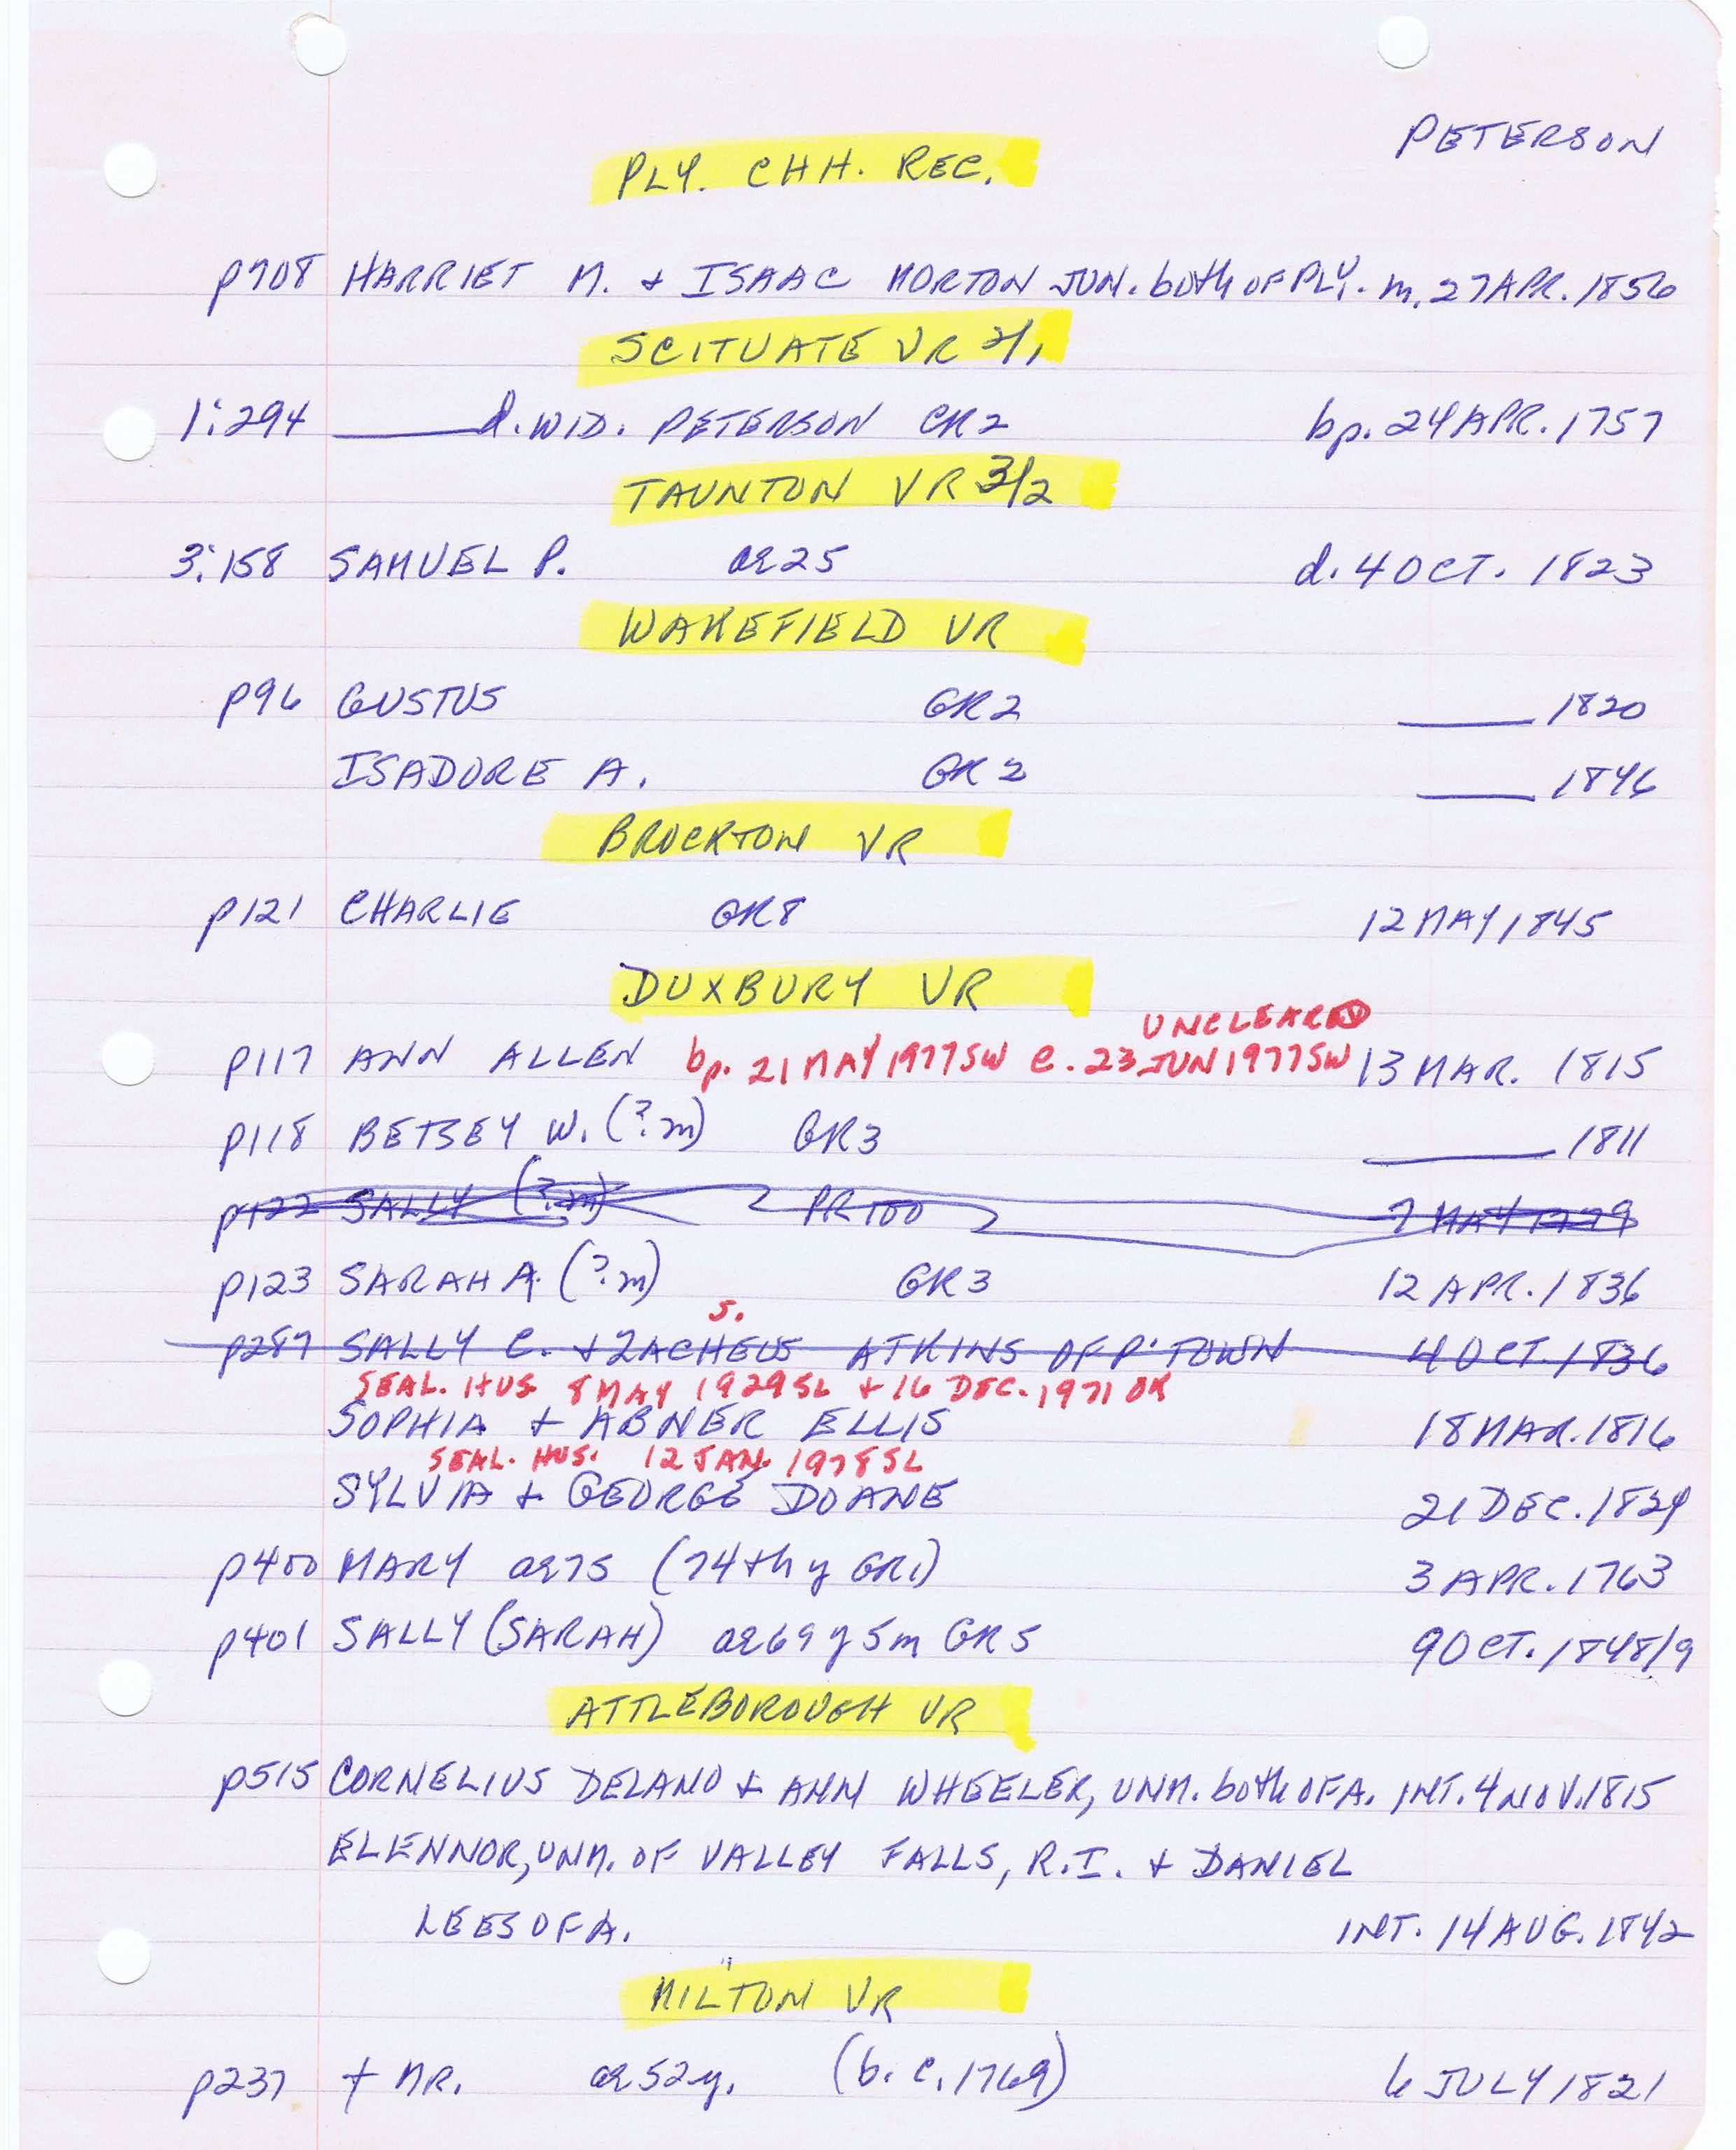 PETERSON
PLY. CHH. REC.
p708 HARRIET M. + ISAAC MORTON JUN. both OF PLY. m. 27 APR. 1856
SCITUATE VR 2/1
1:294 ____ d. WID. PETERSON CR2 bp. 24 APR. 1757
TAUNTON VR 3/2
3:158 SAMUEL P. ae25 d. 4 OCT. 1823
WAKEFIELD VR
p96 GUSTUS GR2 ____ 1820
ISADORE A. GR2 ____ 1846
BROCKTON VR
p121 CHARLIE GR8 12 MAY 1845
DUXBURY VR
UNCLEARED
p117 ANN ALLEN bp. 21 MAY 1977SW e. 23 JUN 1977SW 13 MAR. 1815
p118 BETSEY W. (?m) GR3 ____ 1811
p122 SALLY (?m) PR100 7 MAY 1779
p123 SARAH A. (?m) GR3 12 APR. 1836
S.
p287 SALLY C. + ZACHEUS ATKINS OF P'TOWN 4 OCT. 1836
SEAL. HUS. 8 MAY 1929SL + 16 DEC. 1971 OK
SOPHIA + ABNER ELLIS 18 MAR. 1816
SEAL. HUS. 12 JAN. 1978SL
SYLVIA + GEORGE DOANE 21 DEC. 1824
p400 MARY ae75 (74th y GR1) 3 APR. 1763
p401 SALLY (SARAH) ae69y5m GR5 9 OCT. 1848/9
ATTLEBOROUGH VR
p515 CORNELIUS DELANO + ANN WHEELER, UNM. both OF A. INT. 4 NOV. 1815
ELENNOR, UNM. OF VALLEY FALLS, R.I. + DANIEL
LEES OF A. INT. 14 AUG. 1842
MILTON VR
p237 + MR. ae52y. (b. c. 1769) 6 JULY 1821